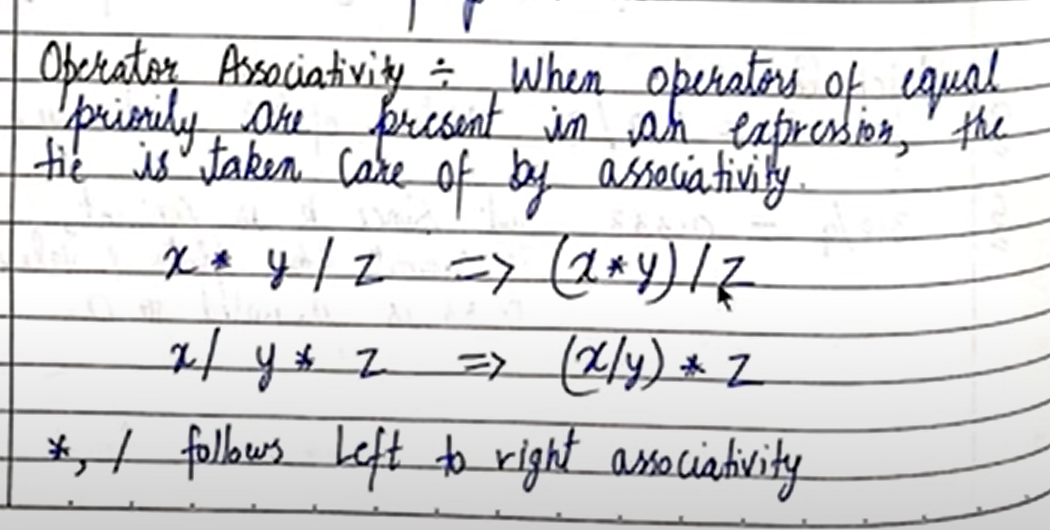 Operator Associativity ÷ When operators of equal
priority are present in an expression, the
tie is taken care of by associativity.
x * y / z => (x*y) / z
x/ y * z => (x/y) * z
*, / follows left to right associativity